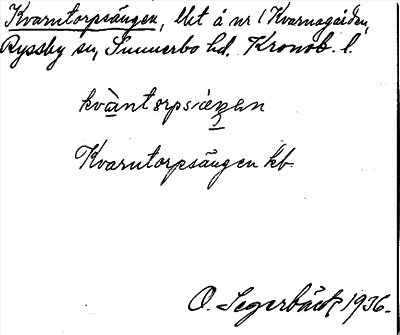 Kvarntorpsängen, lht å nr 1 Kvarnagården,
Ryssby sn, Sunnerbo hd. Kronob. l.
kvàntorpsiæŋen
Kvarntorpsängen kb.
O. Segerbäck 1936.